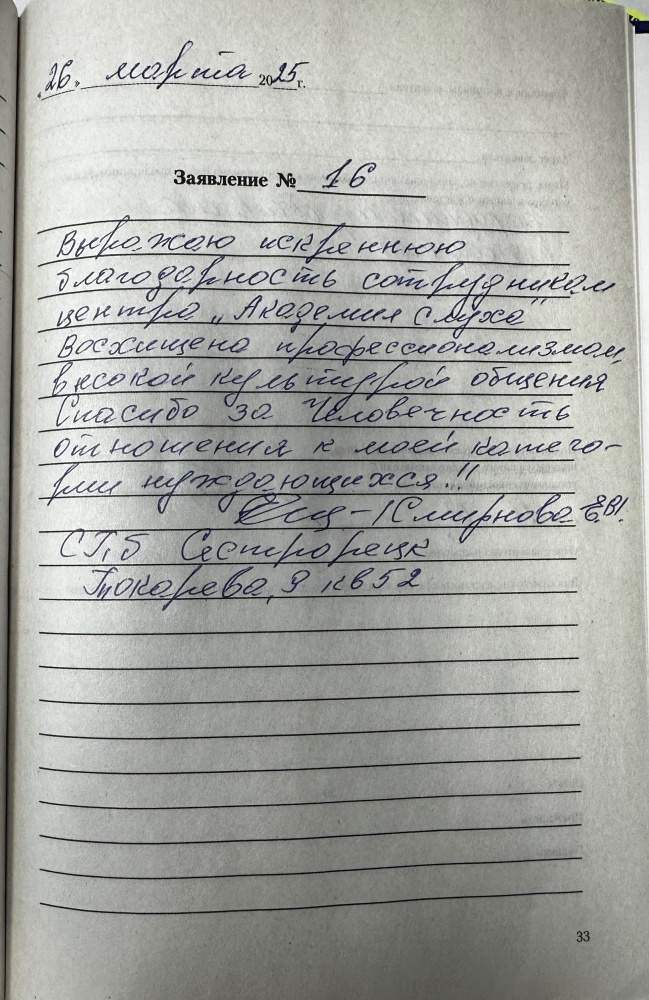 "26" марта 2025 г.
Заявление № 16
Выражаю искреннюю
благодарность сотрудникам
центра „Академия слуха"
Восхищена профессионализмом,
высокой культурой общения
Спасибо за Человечность
отношения к моей катего-
рии нуждающихся!!
/Смирнова Е.В/.
СПб Сестрорецк
Токарева, 9 кв 52
33